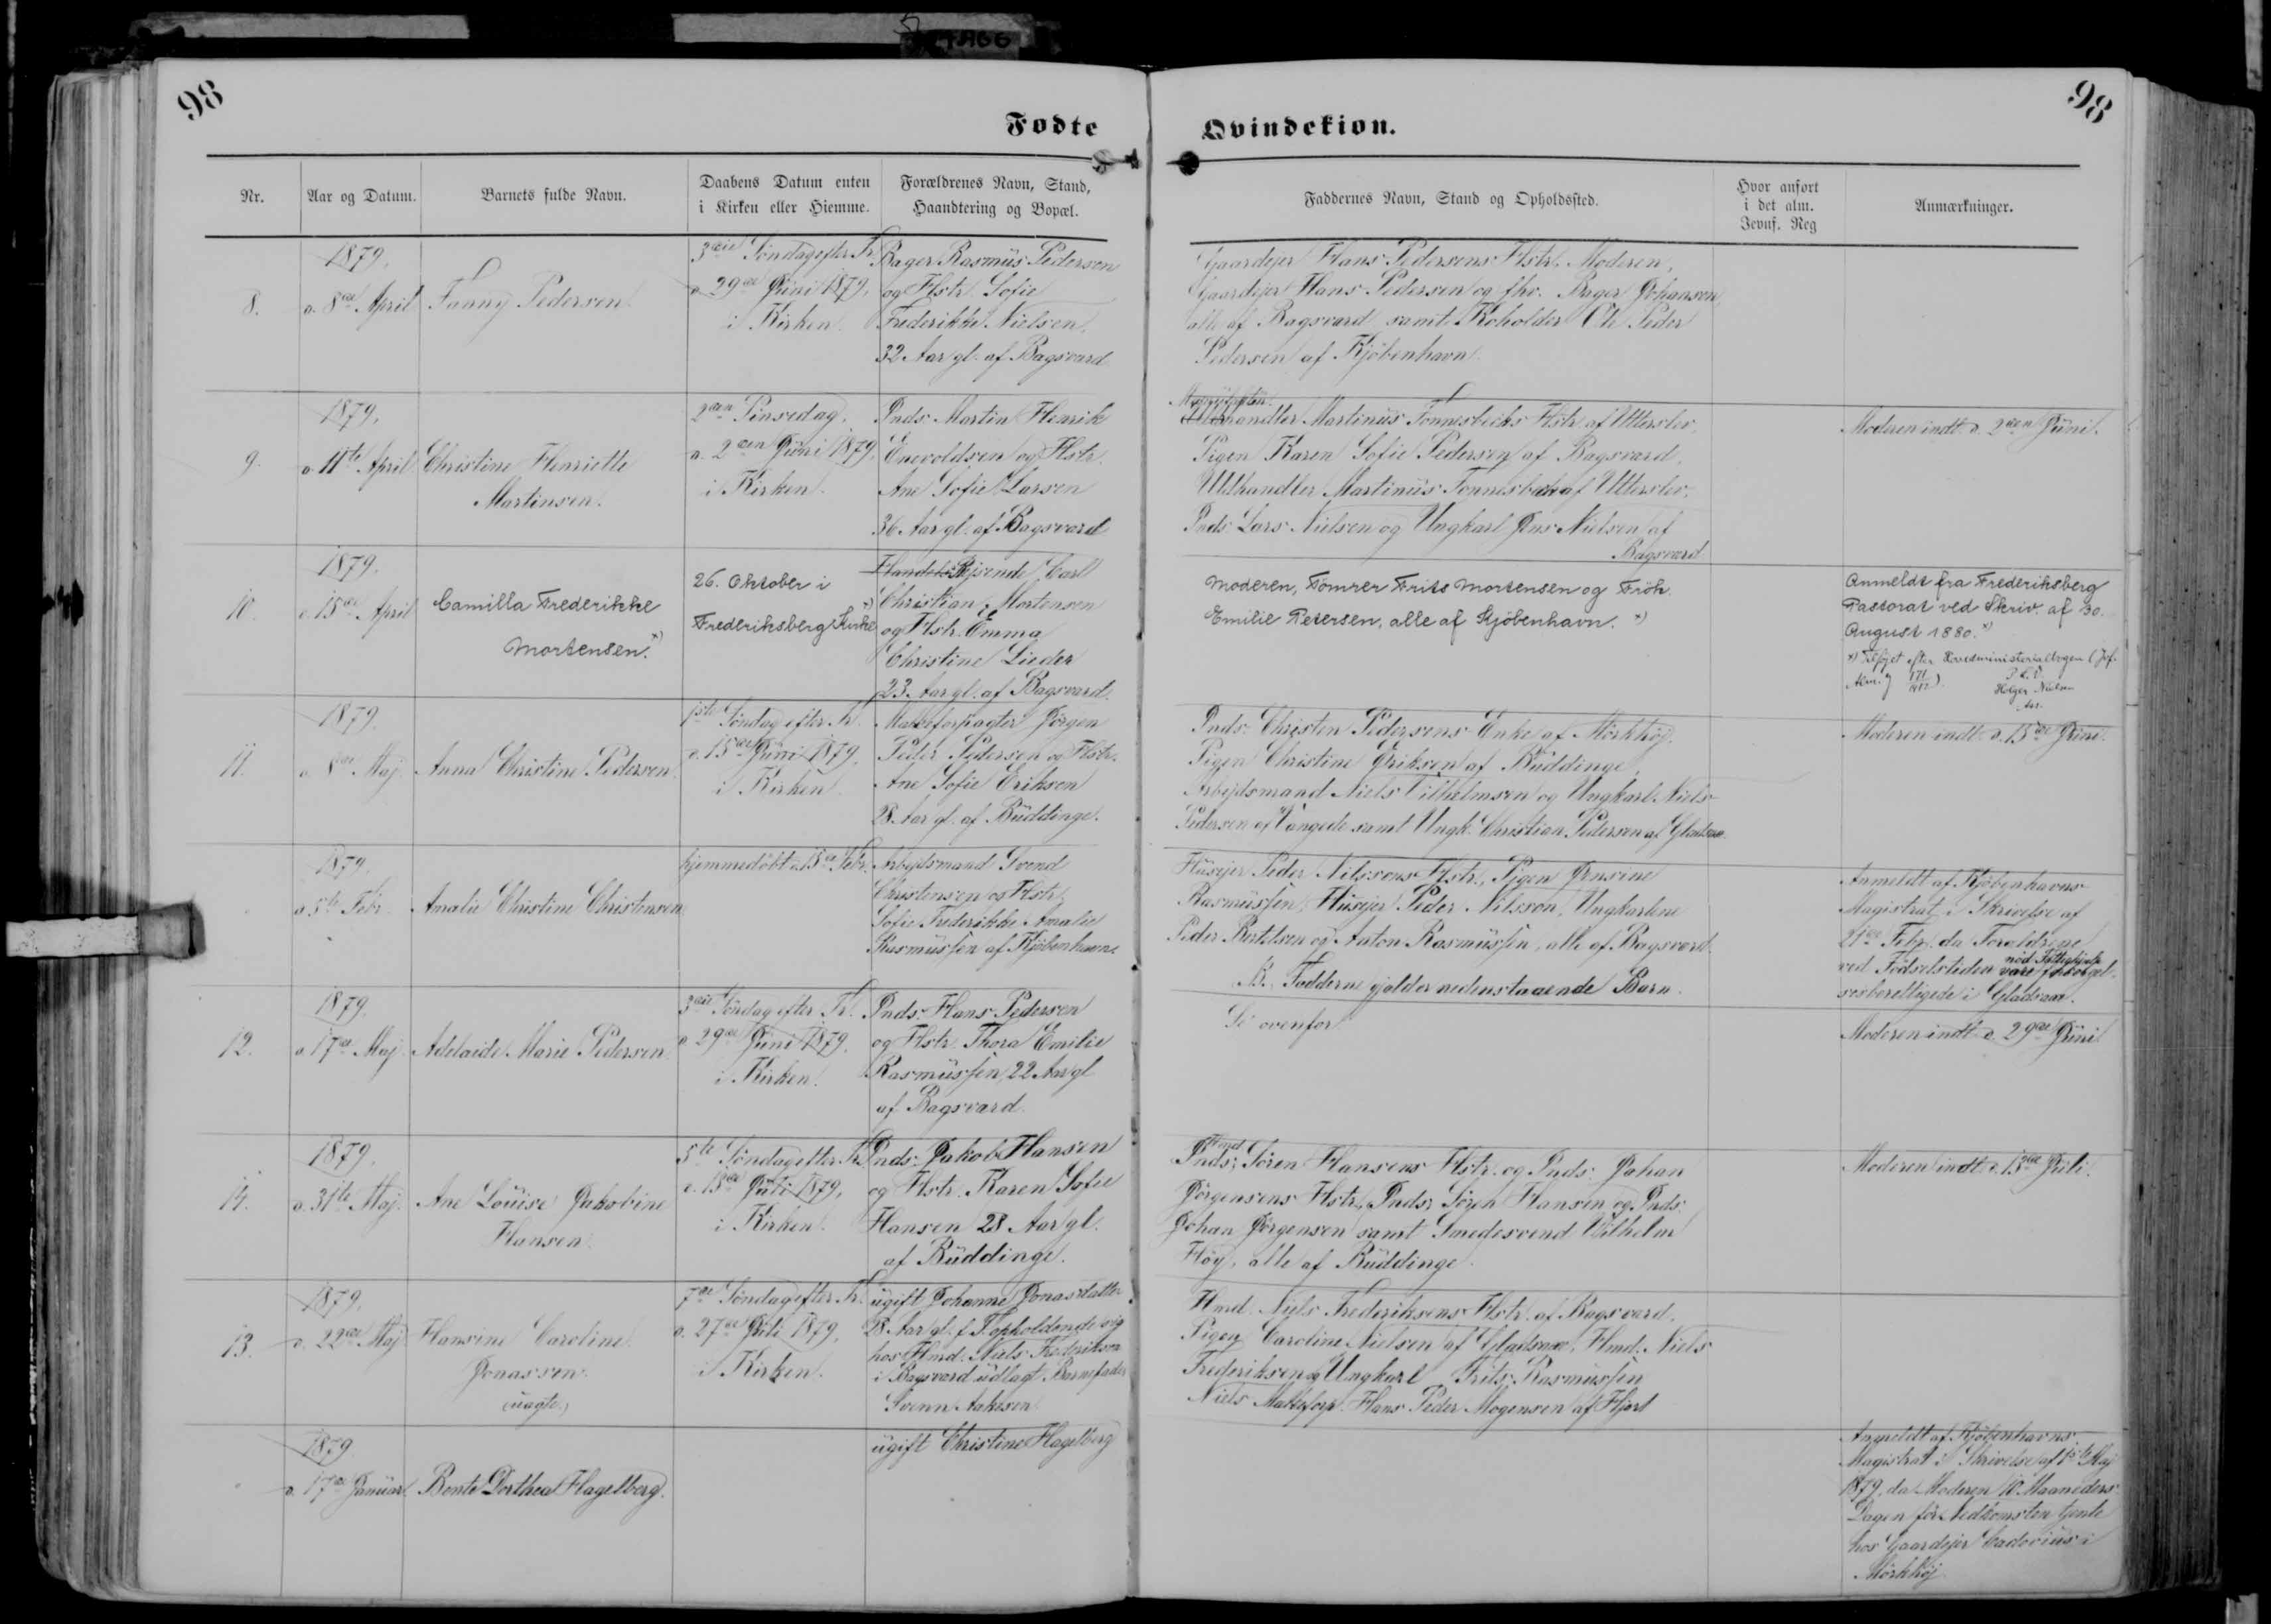 98
98
Fødte
Qvindekiøn.
Nr.
Aar og Datum.
Barnets fulde Navn.
Daabens Datum enten
i Kirken eller Hiemme.
Forældrenes Navn, Stand,
Haandtering og Bopæl.
Faddernes Navn, Stand og Opholdssted.
Hvor anført
i det alm.
Jevnf. Reg
Anmærkninger.
8.
1879.
d. 8de April
Fanny Pedersen.
3die Søndag efter Tr.
d. 29de Juni 1879,
i Kirken.
Bager Rasmus Pedersen
og Hstr. Sofie
Frederikke Nielsen,
32 Aar gl. af Bagsværd
Gaardejer Hans Pedersens Hstr., Moderen,
Gaardejer Hans Pedersen og fhv. Bager Johansen
alle af Bagsværd samt Koholder Ole Peder
Pedersen af Kjøbenhavn.
9.
1879.
d. 11te April
Christine Henriette
Martinsen.
2den Pinsedag.
d. 2den Juni 1879,
i Kirken.
Inds. Martin Henrik
Enevoldsen og Hstr.
Ane Sofie Larsen
36 Aar gl. af Bagsværd
Uldhandler Martinus Tonnesbecks Hstr. af Utterslev.
Pigen Karen Sofie Pedersen af Bagsværd.
Uldhandler Martinus Tonnesbech af Utterslev.
Inds. Lars Nielsen og Ungkarl Jens Nielsen af
Bagsværd
Moderen indt. d. 2den Juni.
10.
1879.
d. 15de April
Camilla Frederikke
Mortensen. x)
26. Oktober i
Frederiksberg Kirke x)
Handelsrejsende Carl
Christian Mortensen
og Hstr. Emma
Christine Lieder
23 Aar gl. af Bagsværd.
Moderen, Tømrer Frits Mortensen og Frøk.
Emilie Petersen, alle af Kjøbenhavn. x)
Anmeldt fra Frederiksberg
Pastorat ved Skriv. af 30.
August 1880. x)
x) Tilføjet efter Hovedministerialbogen (Jvf.
Holger Nielsen
11.
1879.
d. 8de Maj.
Anna Christine Pedersen.
1ste Søndag efter Tr.
d. 15de Juni 1879,
i Kirken.
Mælkeforpagter Jørgen
Peder Pedersen og Hstr.
Ane Sofie Eriksen
28 Aar gl. af Buddinge.
Inds. Christen Pedersens Enke af Mørkhøj.
Pigen Christine Eriksen af Buddinge,
Arbejdsmand Niels Vilhelmsen og Ungkarl Niels
Pedersen af Vangede samt Ungk. Christian Pedersen af Gladsaxe
Moderen indt. d. 15de Juni.
1879.
d. 5te Febr.
Amalie Christine Christensen
hjemmedøbt d. 15de Febr.
Arbejdsmand Svend
Christensen og Hstr.
Sofie Frederikke Amalie
Rasmussen af Kjøbenhavn.
Husejer Peder Nilssons Hstr., Pigen Jensine
Rasmussen, Husejer Peder Nilsson, Ungkarlene
Peder Bertelsen og Anton Rasmussen, alle af Bagsværd.
B. Fadderne gjælder nedenstaaende Barn.
Anmeldt af Kjøbenhavns
Magistrat i Skrivelse af
21de Febr. da Forældrene
ved Fødselstiden vare forsørgel-
sesberettigede i Gladsaxe.
12.
1879.
d. 17de Maj.
Adelaide Marie Pedersen
3die Søndag efter Tr.
d. 29de Juni 1879.
i Kirken.
Inds. Hans Pedersen
og Hstr. Thora Emilie
Rasmussen, 22 Aar gl
af Bagsværd.
Se ovenfor.
Moderen indt. d. 29de Juni
14.
1879.
d. 31te Maj.
Ane Louise Jakobine
Hansen.
5te Søndag efter Tr.
d. 13de Juli 1879,
i Kirken.
Inds. Jakob Hansen
og Hstr. Karen Sofie
Hansen 28 Aar gl.
af Buddinge.
Hmd
Inds. Søren Hansens Hstr. og Inds. Johan
Jørgensens Hstr., Inds. Søren Hansen og Inds.
Johan Jørgensen samt Smedesvend Vilhelm
Høy, alle af Buddinge.
Moderen indt. d. 13de Juli.
13.
1879.
d. 22de Maj
Hansine Caroline
Jonassen.
(uægte)
7de Søndag efter Tr.
d. 27de Juli 1879,
i Kirken.
ugift Johanne Jonasdatter
28 Aar gl. f. T. opholdende sig
hos Hmd. Niels Frederiksen
i Bagsværd udlagt Barnefader
Svenn Aakesen
Hmd. Niels Frederiksens Hstr. af Bagsværd.
Pigen Caroline Nielsen af Gladsaxe, Hmd. Niels
Frederiksen og Ungkarl Frits Rasmussen
Niels Hans Peder Mogensen af Hjort
1879
d. 17de Januar
Bente Dorthea Hagelberg.
ugift Christine Hagelberg
Anmeldt af Kjøbenhavns
Magistrat i Skrivelse af 1ste Maj
1879, da Moderen 10 Maaneders
Dagen før Nedkomsten tjente
hos Gaardejer Cadovius i
Mørkhøj